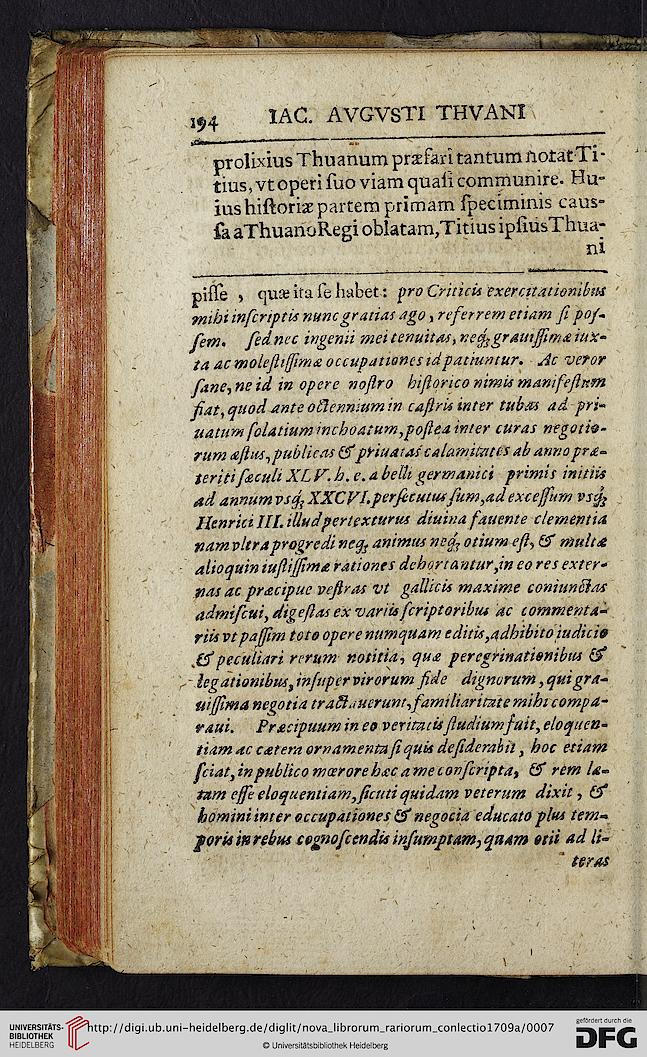 194 IAC. AVGVSTI THVANI
prolixius Thuanum præfari tantum notat Ti-
tius, vt operi ſuo viam quaſi communire. Hu-
ius hiſtoriæ partem primam ſpeciminis caus-
ſa a Thuano Regi oblatam, Titius ipſius Thua-
ni
piſſe , quæ ita ſe habet : pro Criticis exercitationibus
mihi inſcriptis nunc gratias ago , referrem etiam ſi poſ-
ſem. ſed nec ingenii mei tenuitas, neq; grauiſſimæ iux-
ta ac moleſtiſſimæ occupationes id patiuntur. Ac veror
ſane, ne id in opere noſtro hiſtorico nimis manifeſtum
fiat, quod ante octennium in caſtris inter tubas ad pri-
uatum ſolatium inchoatum, poſtea inter curas negotio-
rum æſtus, publicas & priuatas calamitates ab anno præ-
teriti ſæculi XLV. h. e. a belli germanici primis initiis
ad annum vsq; XXCVI. perſecutus ſum, ad exceſſum vsq;
Henrici III. illud pertexturus diuina fauente clementia
nam vltra progredi neq; animus neq; otium eſt, & multæ
alioquin iuſtiſſimæ rationes dehortantur, in eo res exter-
nas ac præcipue veſtras vt gallicis maxime coniunctas
admiſcui, digeſtas ex variis ſcriptoribus ac commenta-
riis vt paſſim toto opere numquam editis, adhibito iudicio
& peculiari rerum notitia, quæ peregrinationibus &
legationibus, inſuper virorum fide dignorum , qui gra-
uiſſima negotia tractauerunt, familiaritate mihi compa-
raui. Præcipuum in eo veritatis ſtudium fuit, eloquen-
tiam ac cætera ornamenta ſi quis deſiderabit , hoc etiam
ſciat, in publico mœrore hæc a me conſcripta, & rem læ-
tam eſſe eloquentiam, ſicuti quidam veterum dixit , &
homini inter occupationes & negocia educato plus tem-
poris in rebus cognoſcendis inſumptam, quam otii ad li-
teras
UNIVERSITÄTS-
BIBLIOTHEK
HEIDELBERG
http://digi.ub.uni-heidelberg.de/diglit/nova_librorum_rariorum_conlectio1709a/0007
© Universitätsbibliothek Heidelberg
gefördert durch die
DFG